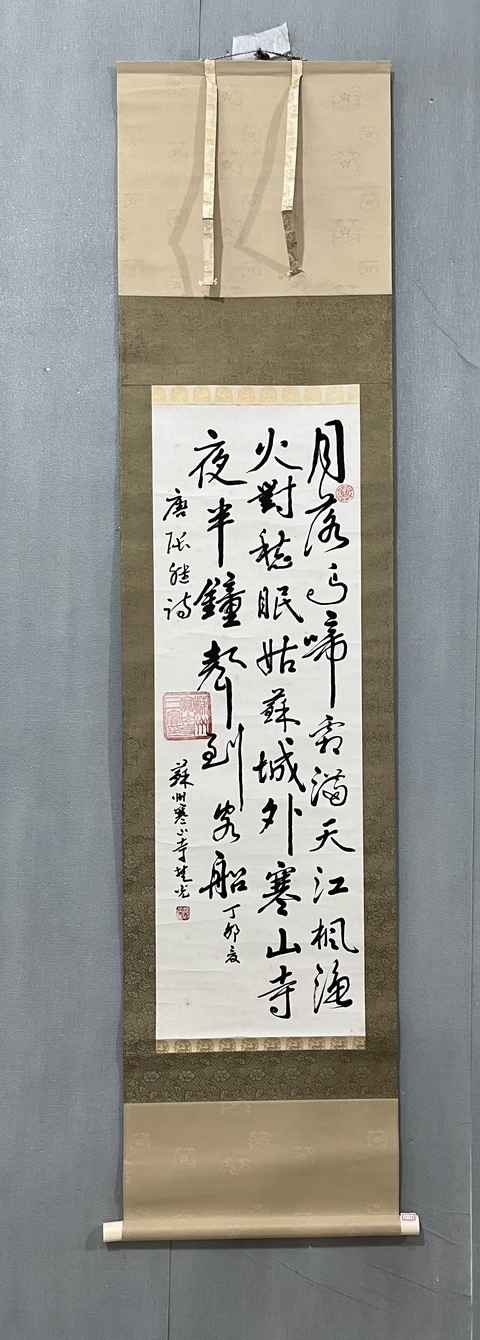 月落烏啼霜滿天江楓漁
火對愁眠姑蘇城外寒山寺
夜半鐘聲到客船
丁卯夏
唐張繼詩
蘇州寒山寺楚光